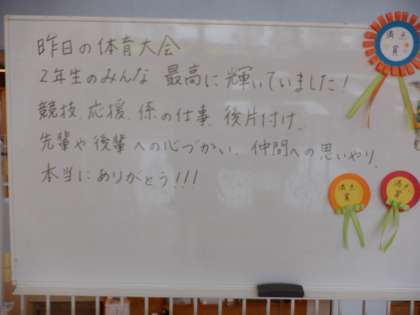 昨日の体育大会
2年生のみんな 最高に輝いていました!
競技、応援、係の仕事、後片付け、
先輩や後輩への心づかい、仲間への思いやり、
本当にありがとう!!!
満点
賞
満点
賞
満点
賞